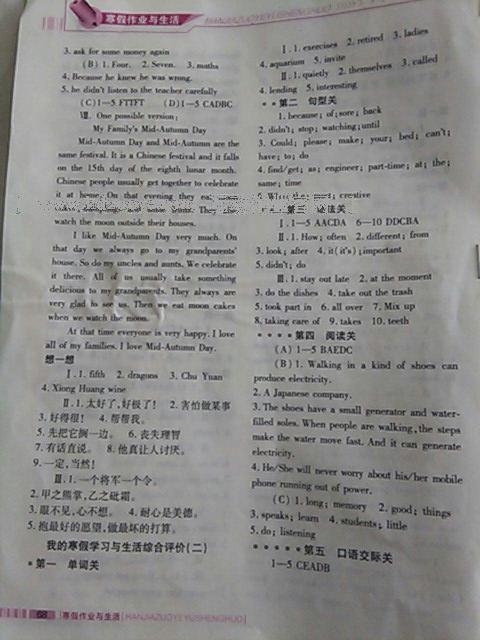 寒假作业与生活
3. ask for some money again
(B) 1. Four. 2. Seven. 3. maths
4. Because he knew he was wrong.
5. he didn't listen to the teacher carefully
(C)1—5 FTFFT (D)1—5 CADBC
Ⅷ. One possible version:
My Family's Mid-Autumn Day
Mid-Autumn Day and Mid-Autumn are the
same festival. It is a Chinese festival and it falls
on the 15th day of the eighth lunar month.
Chinese people usually get together to celebrate
it at home. On that evening they eat
watch the moon outside their houses.
I like Mid-Autumn Day very much. On
that day we always go to my grandparents'
house. So do my uncles and aunts. We celebrate
it there. All of us usually take something
delicious to my grandparents. They always are
very glad to see us. Then we eat moon cakes
when we watch the moon.
At that time everyone is very happy. I love
all of my families. I love Mid-Autumn Day.
想一想
Ⅰ. 1. fifth 2. dragons 3. Chu Yuan
4. Xiong Huang wine
Ⅱ. 1. 太好了,好极了! 2. 害怕做某事
3. 好得很! 4. 帮帮我。
5. 先把它搁一边。 6. 丧失理智
7. 有话直说。 8. 他真让人讨厌。
9. 一定,当然!
Ⅲ. 1. 一个将军一个令。
2. 甲之熊掌,乙之砒霜。
3. 眼不见,心不想。 4. 耐心是美德。
5. 抱最好的愿望,做最坏的打算。
我的寒假学习与生活综合评价(二)
第一 单词关
Ⅰ. 1. exercises 2. retired 3. ladies
4. aquarium 5. invite
Ⅱ. 1. quietly 2. themselves 3. called
4. lending 5. interesting
第二 句型关
1. because; of; sore; back
2. didn't; stop; watching; until
3. Could; please; make; your; bed; can't;
have; to; do
4. find/get; as; engineer; part-time; at; the;
same; time
creative
第三 语法关
Ⅰ. 1—5 AACDA 6—10 DDCBA
Ⅱ. 1. How; often 2. different; from
3. look; after 4. it( it's); important
5. didn't; do
Ⅲ. 1. stay out late 2. at the moment
3. do the dishes 4. take out the trash
5. took part in 6. all over 7. Mix up
8. taking care of 9. takes 10. teeth
第四 阅读关
(A) 1—5 BAEDC
(B) 1. Walking in a kind of shoes can
produce electricity.
2. A Japanese company.
3. The shoes have a small generator and water-
filled soles. When people are walking, the steps
make the water move fast. And it can generate
electricity.
4. He/She will never worry about his/her mobile
phone running out of power.
(C) 1. long; memory 2. good; things
3. speaks; learn 4. students; little
5. do; listening
第五 口语交际关
1—5 CEADB
68 寒假作业与生活 HANJIAZUOYE YUSHENGHUO